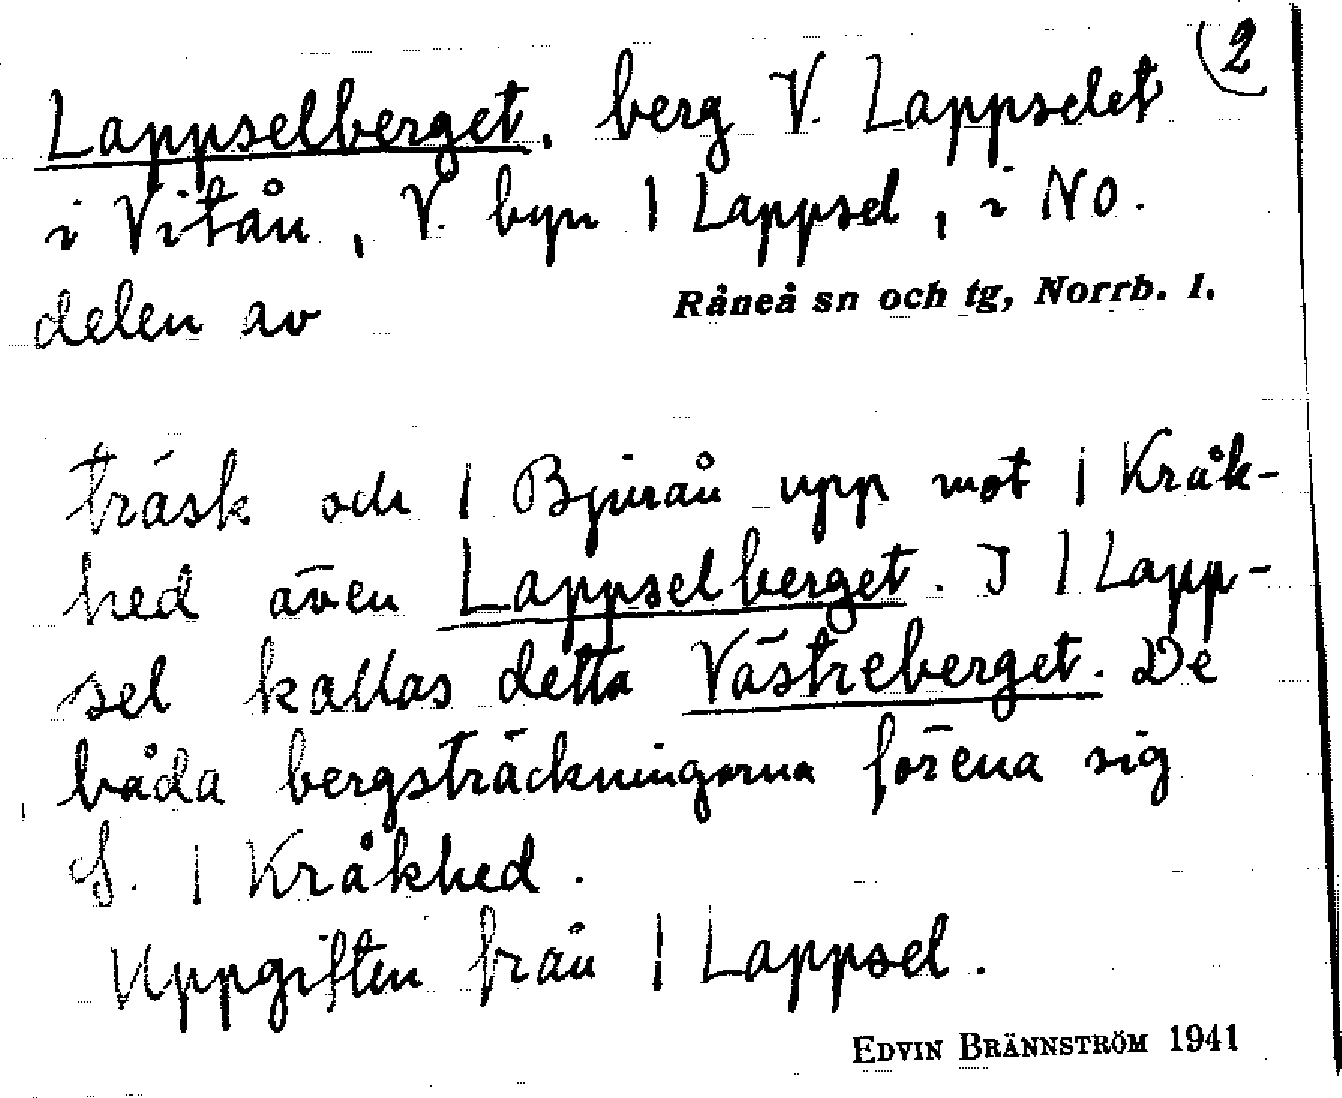 2
Lappselberget, berg V. Lappselet
i Vitån, V. byn | Lappsel, i NO.
delen av
Råneå sn och tg, Norrb. l.
träsk och | Bjurån upp mot | Kråk-
hed även Lappselberget. I | Lapp-
sel kallas detta Västreberget. De
båda bergsträckningarna förena sig
S. | Kråkhed.
Uppgiften från | Lappsel.
EDVIN BRÄNNSTRÖM 1941